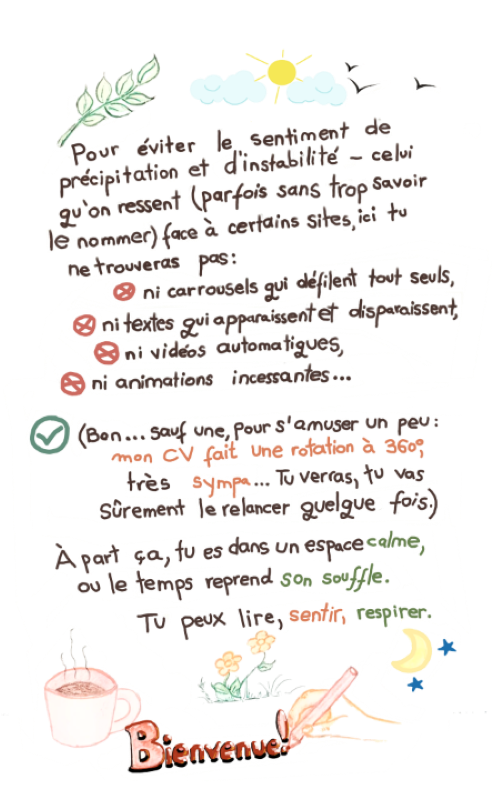 Pour éviter le sentiment de
précipitation et d'instabilité - celui
qu'on ressent (parfois sans trop savoir
le nommer) face à certains sites, ici tu
ne trouveras pas:
ni carrousels qui défilent tout seuls,
ni textes qui apparaissent et disparaissent,
ni vidéos automatiques,
ni animations incessantes...
(Bon... sauf une, pour s'amuser un peu:
mon CV fait une rotation à 360°,
très sympa... Tu verras, tu vas
sûrement le relancer quelque fois.)
À part ça, tu es dans un espace calme,
où le temps reprend son souffle.
Tu peux lire, sentir, respirer.
Bienvenue!